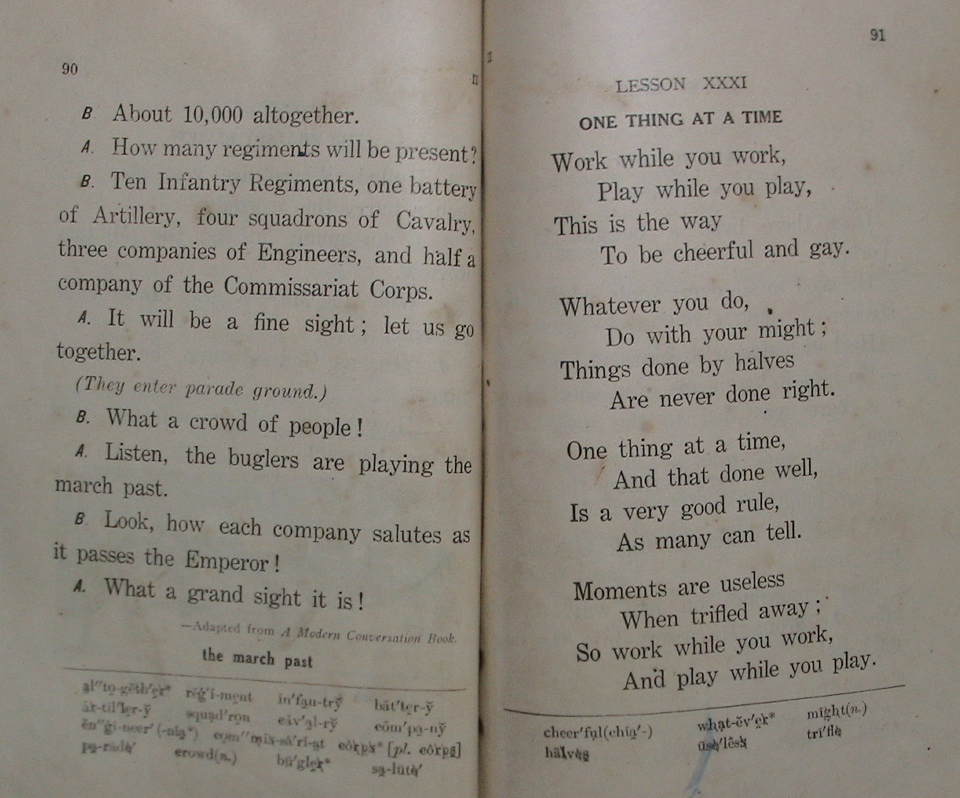 90
B About 10,000 altogether.
A. How many regiments will be present?
B. Ten Infantry Regiments, one battery
of Artillery, four squadrons of Cavalry,
three companies of Engineers, and half a
company of the Commissariat Corps.
A. It will be a fine sight; let us go
together.
(They enter parade ground.)
B. What a crowd of people!
A. Listen, the buglers are playing the
march past.
B. Look, how each company salutes as
it passes the Emperor!
A. What a grand sight it is!
—Adapted from A Modern Conversation Book.
the march past
rĕġ′i-ment ĭn′fan-trў băt′tẽr-ў
är-tĭl′lẽr-ў squạd′ron căv′al-rў cŏm′pa-nў
crowd(n.) bū′glẽr* sa-lūte′
91
LESSON XXXI
ONE THING AT A TIME
Work while you work,
Play while you play,
This is the way
To be cheerful and gay.
Whatever you do,
Do with your might;
Things done by halves
Are never done right.
One thing at a time,
And that done well,
Is a very good rule,
As many can tell.
Moments are useless
When trifled away;
So work while you work,
And play while you play.
cheer′fụl(chïạ′-) whạt-ĕv′ẽr* mīght(n.)
hälves ūse′lĕss trī′fle